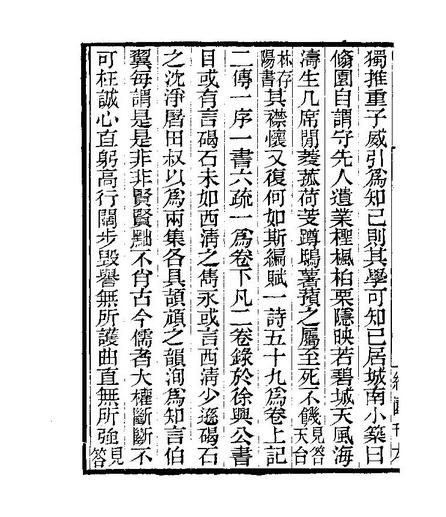 獨推重子威引爲知己則其學可知已居城南小築曰
脩園自謂守先人遺業檉楓柏栗隱映若碧城天風海
濤生几席閒蔆菰荷芰蹲鴟薯蕷之屬至死不饑見答天台
林存陽書其襟懷又復何如斯編賦一詩五十九爲卷上記
二傳一序一書六疏一爲卷下凡二卷錄於徐興公書
目或有言碣石未如西淸之雋永或言西淸少遜碣石
之沈淨屠田叔以爲兩集各具頡頏之韻洵爲知言伯
翼每謂是是非非賢賢黜不肖古今儒者大權斷斷不
可枉誠心直躬高行闊步毀譽無所護曲直無所強見答